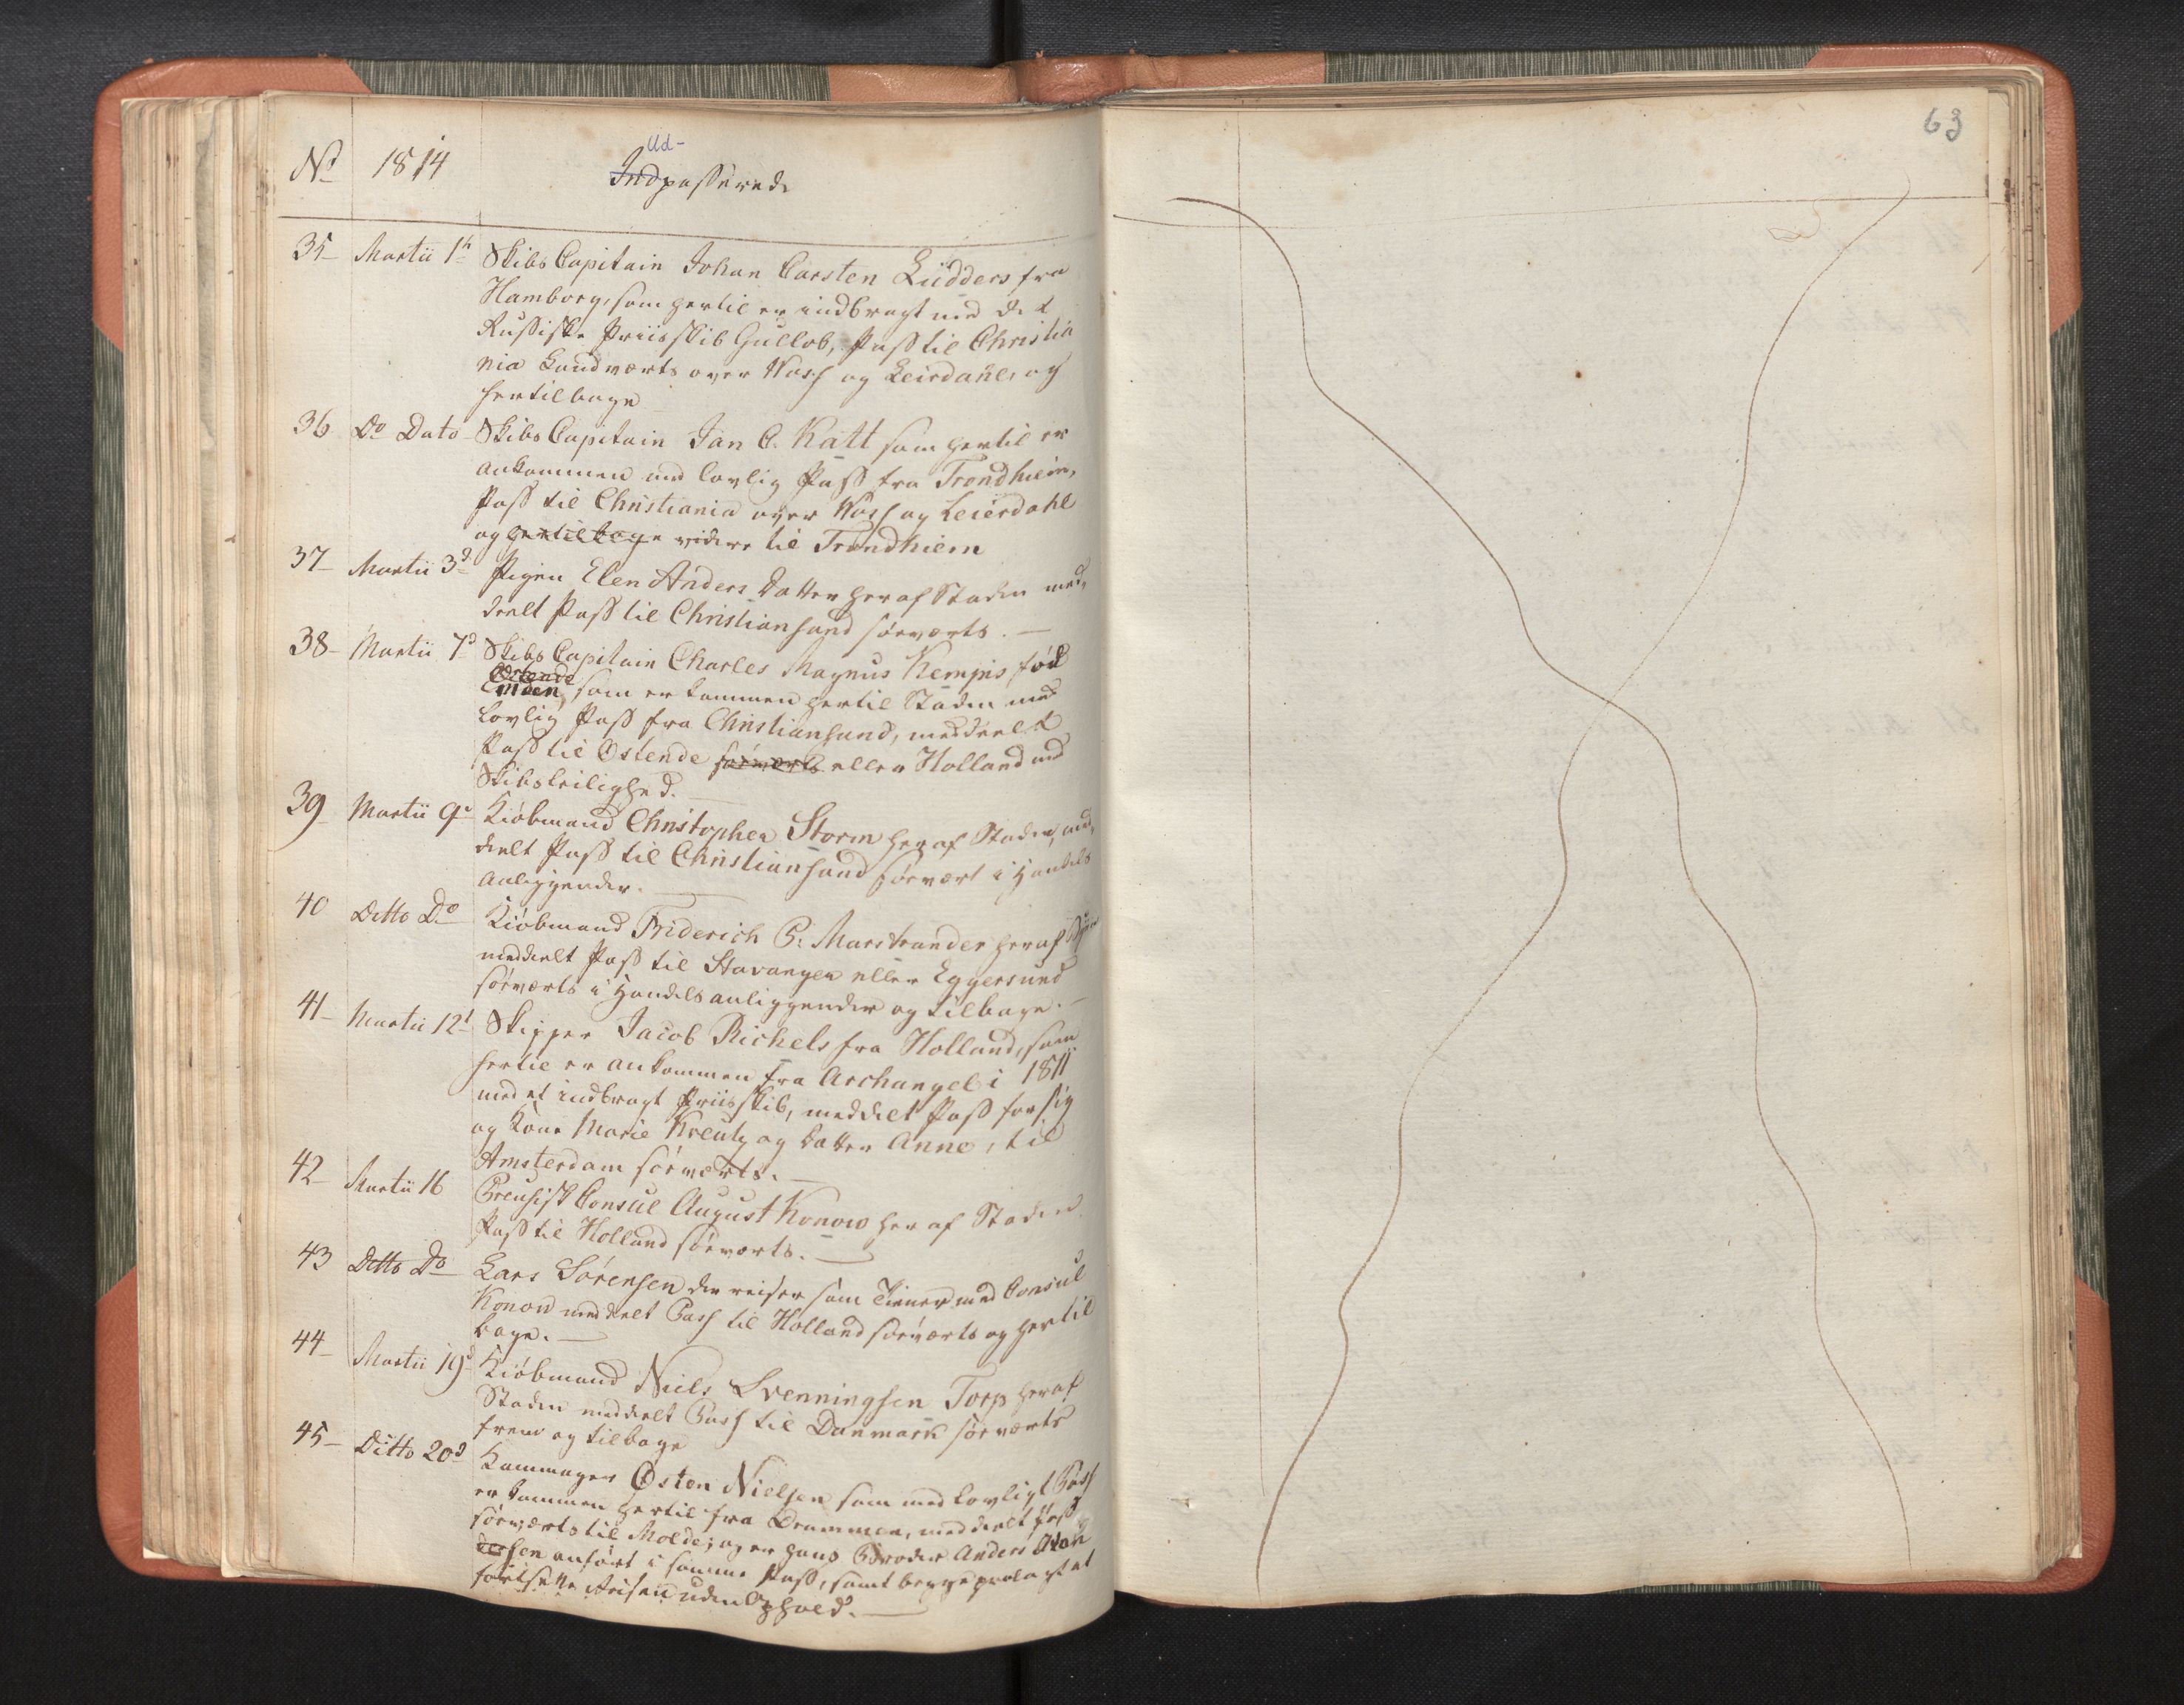 63
No 1814 Ud-
Indpasserede
35 Martii 1te Skibs Capitain Johan Carsten Lüdders fra
Hamborg, som hertil er indbragt med det
Russiske Priisskib Gullob, Pass til Christia
nia Landværts over Woss og Leirdahl, og
hertilbage
36 Do Dato Skibs Capitain Jan C. Katt som hertil er
ankommen med lovlig Pass fra Trondhiem,
Pass til Christiania over Woss og Leierdahl
og hertilbage videre til Trondhiem
37 Martii 3d Pigen Elen Anders Datter her af Staden med,
deelt Pass til Christiansand søeværts. —
38 Martii 7d Skibs Capitain Charles Magnus Kempis fød
Ostende
Emden, som er kommen hertil Staden med
lovlig Pass fra Christiansund, meddeelt
Pass til Ostende søeværts eller Holland med
Skibsleilighed.
39 Martii 9d Kiøbmand Christopher Storm her af Staden, med,
deelt Pass til Christiansund søeværts i Handels
Anliggender. —
40 Ditto Do Kiøbmand Friderich P: Marstrander her af Byen
meddeelt Pass til Stavanger eller Eggersund
søeværts i Handelsanliggender og tilbage. —
41 Martii 12t Skipper Jacob Richels fra Holland, som
hertil er ankommen fra Archangel i 1811
med et indbragt Priisskib, meddelt Pass for sig
og Kone Marie Kreutz og Datter Anne, til
Amsterdam søeværts. —
42 Martii 16 Preusisk Consul August Konow her af Staden
Pass til Holland søeværts. —
43 Ditto Do Lars Sørensen der reiser som Tiener med Consul
Konow meddelt Pass til Holland søeværts og hertil
bage. —
44 Martii 19d Kiøbmand Niels Svenningsen Torp her af
Staden meddeelt Pass til Danmark søeværts
frem og tilbage
45 Ditto 20d Kammager Østen Nielsen som med lovligt Pass
er kommen hertil fra Drammen, meddeelt Pass
søeværts til Molde; og er hans Broder Anders
sen anført i samme Pass, samt begge paalagt at
fortsette Reisen uden Ophold. —